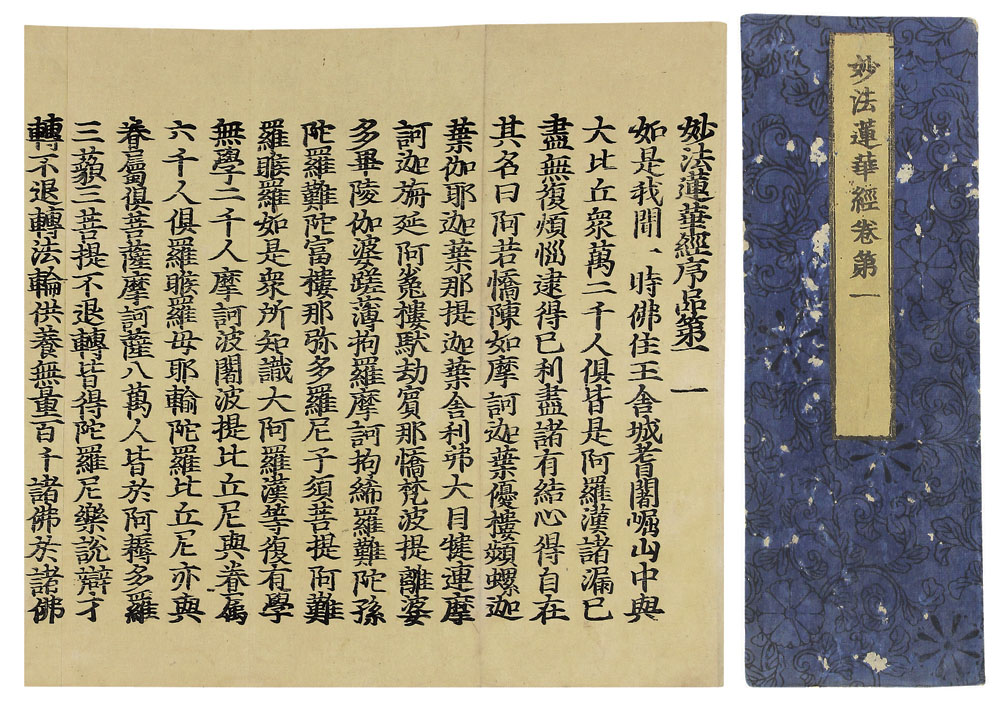 妙法蓮華經序品第一
如是我聞一時佛住王舍城耆闍崛山中與
大比丘衆萬二千人俱皆是阿羅漢諸漏已
盡無復煩惱逮得已利盡諸有結心得自在
其名曰阿若憍陳如摩訶迦葉優樓頻螺迦
葉伽耶迦葉那提迦葉舍利弗大目犍連摩
訶迦旃延阿㝹樓馱劫賓那憍梵波提離婆
多畢陵伽婆蹉薄拘羅摩訶拘絺羅難陀孫
陀羅難陀富樓那弥多羅尼子須菩提阿難
羅睺羅如是衆所知識大阿羅漢等復有學
無學二千人摩訶波闍波提比丘尼與眷属
六千人俱羅睺羅母耶輸陀羅比丘尼亦與
眷屬俱菩薩摩訶薩八萬人皆於阿耨多羅
三藐三菩提不退轉皆得陀羅尼樂說辯才
轉不退轉法輪供養無量百千諸佛於諸佛
妙法蓮華經卷第一